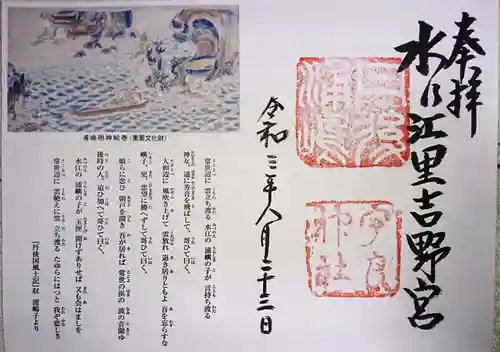 奉拝
水の江里吉野宮
宇良
神社
令和三年八月二十三日
浦嶋明神絵巻(重要文化財)
常世辺に 雲立ち渡る 水江の 浦嶼の子が 言持ち渡る
神女、遥に芳音を飛ばして、哥ひて曰く、
大和辺に 風吹き上げて 雲放れ 退き居りともよ 吾を忘らすな
嶼子、更、恋望に勝へずして哥ひて曰く、
娘らに恋ひ 朝戸を開き 吾が居れば 常世の浜の 波の音聞ゆ
後時の人、追ひ加へて哥ひて曰く、
水江の 浦嶼の子が 玉匣 開けずありせば 又も会はましを
常世辺に 雲絶えに雲 立ち渡る たゆらにはつと 我ぞ悲しき
「丹後国風土記」収 浦嶋子より